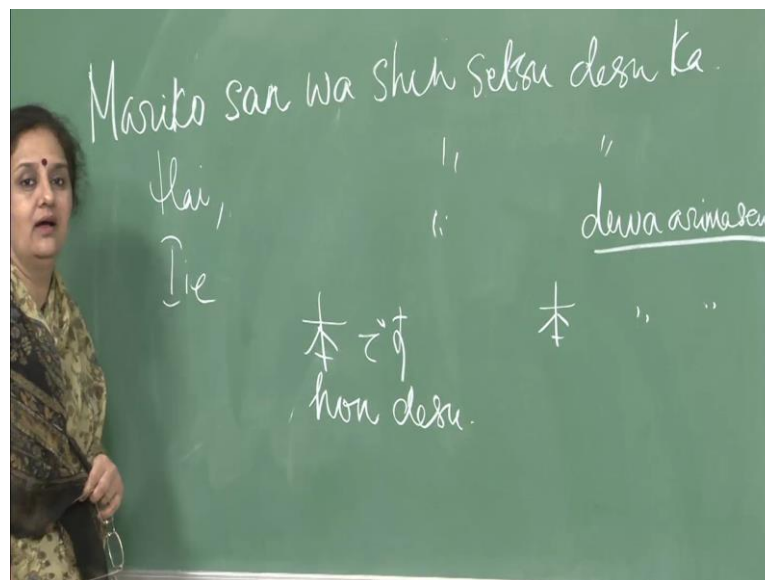 Mariko san wa shin setsu desu ka.
Hai, " "
Iie " dewa arimasen
本です 本 " "
hon desu.